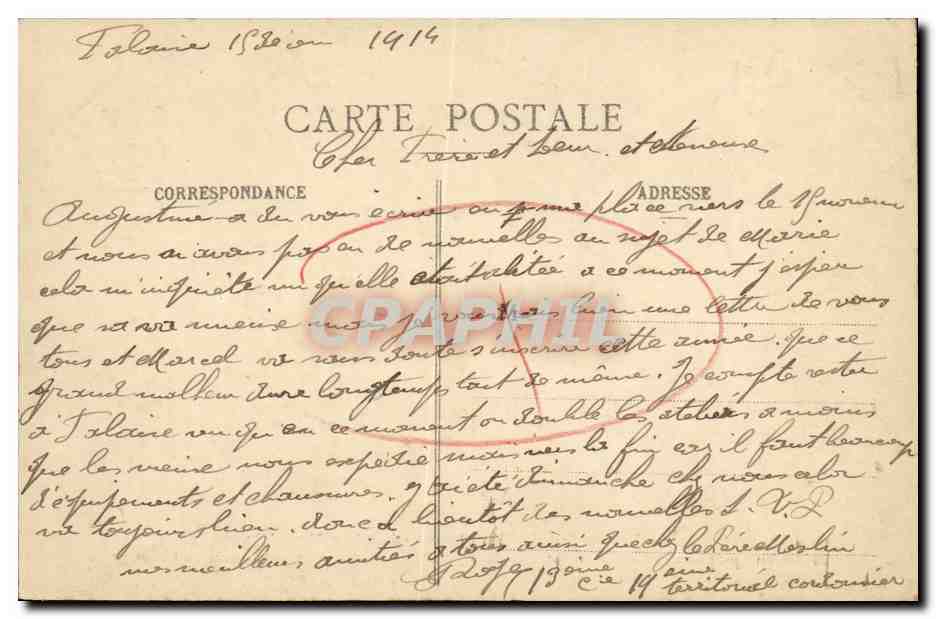 Falaise 15 décem 1914
CARTE POSTALE
Cher Frère et Sœur et
CORRESPONDANCE ADRESSE
Augustine a du vous écrire on p me place vers le 15 novem
et nous n avons pas eu de nouvelles au sujet de Marie
cela m'inquiète vu qu'elle était alitée a ce moment j'esper
que sa va mieux mais je voudrais bien une lettre de vous
tous et Marcel va sans doute s'inscrire cette année. que ce
grand malheur dure longtemps tout de même. Je compte rester
à Falaise vu qu en ce moment on double les ateliers a moins
que les vieux nous expédie mais vers la fin car il faut beaucoup
d'équipements et chaussures. J'ai été dimanche chez nous cela
va toujours bien. donc a bientôt des nouvelles S. V. P
mes meilleurs amitiés a tous ainsi que chez le Père Meslin
13ème Cie 19ème territorial cordonnier
CPAPHIL